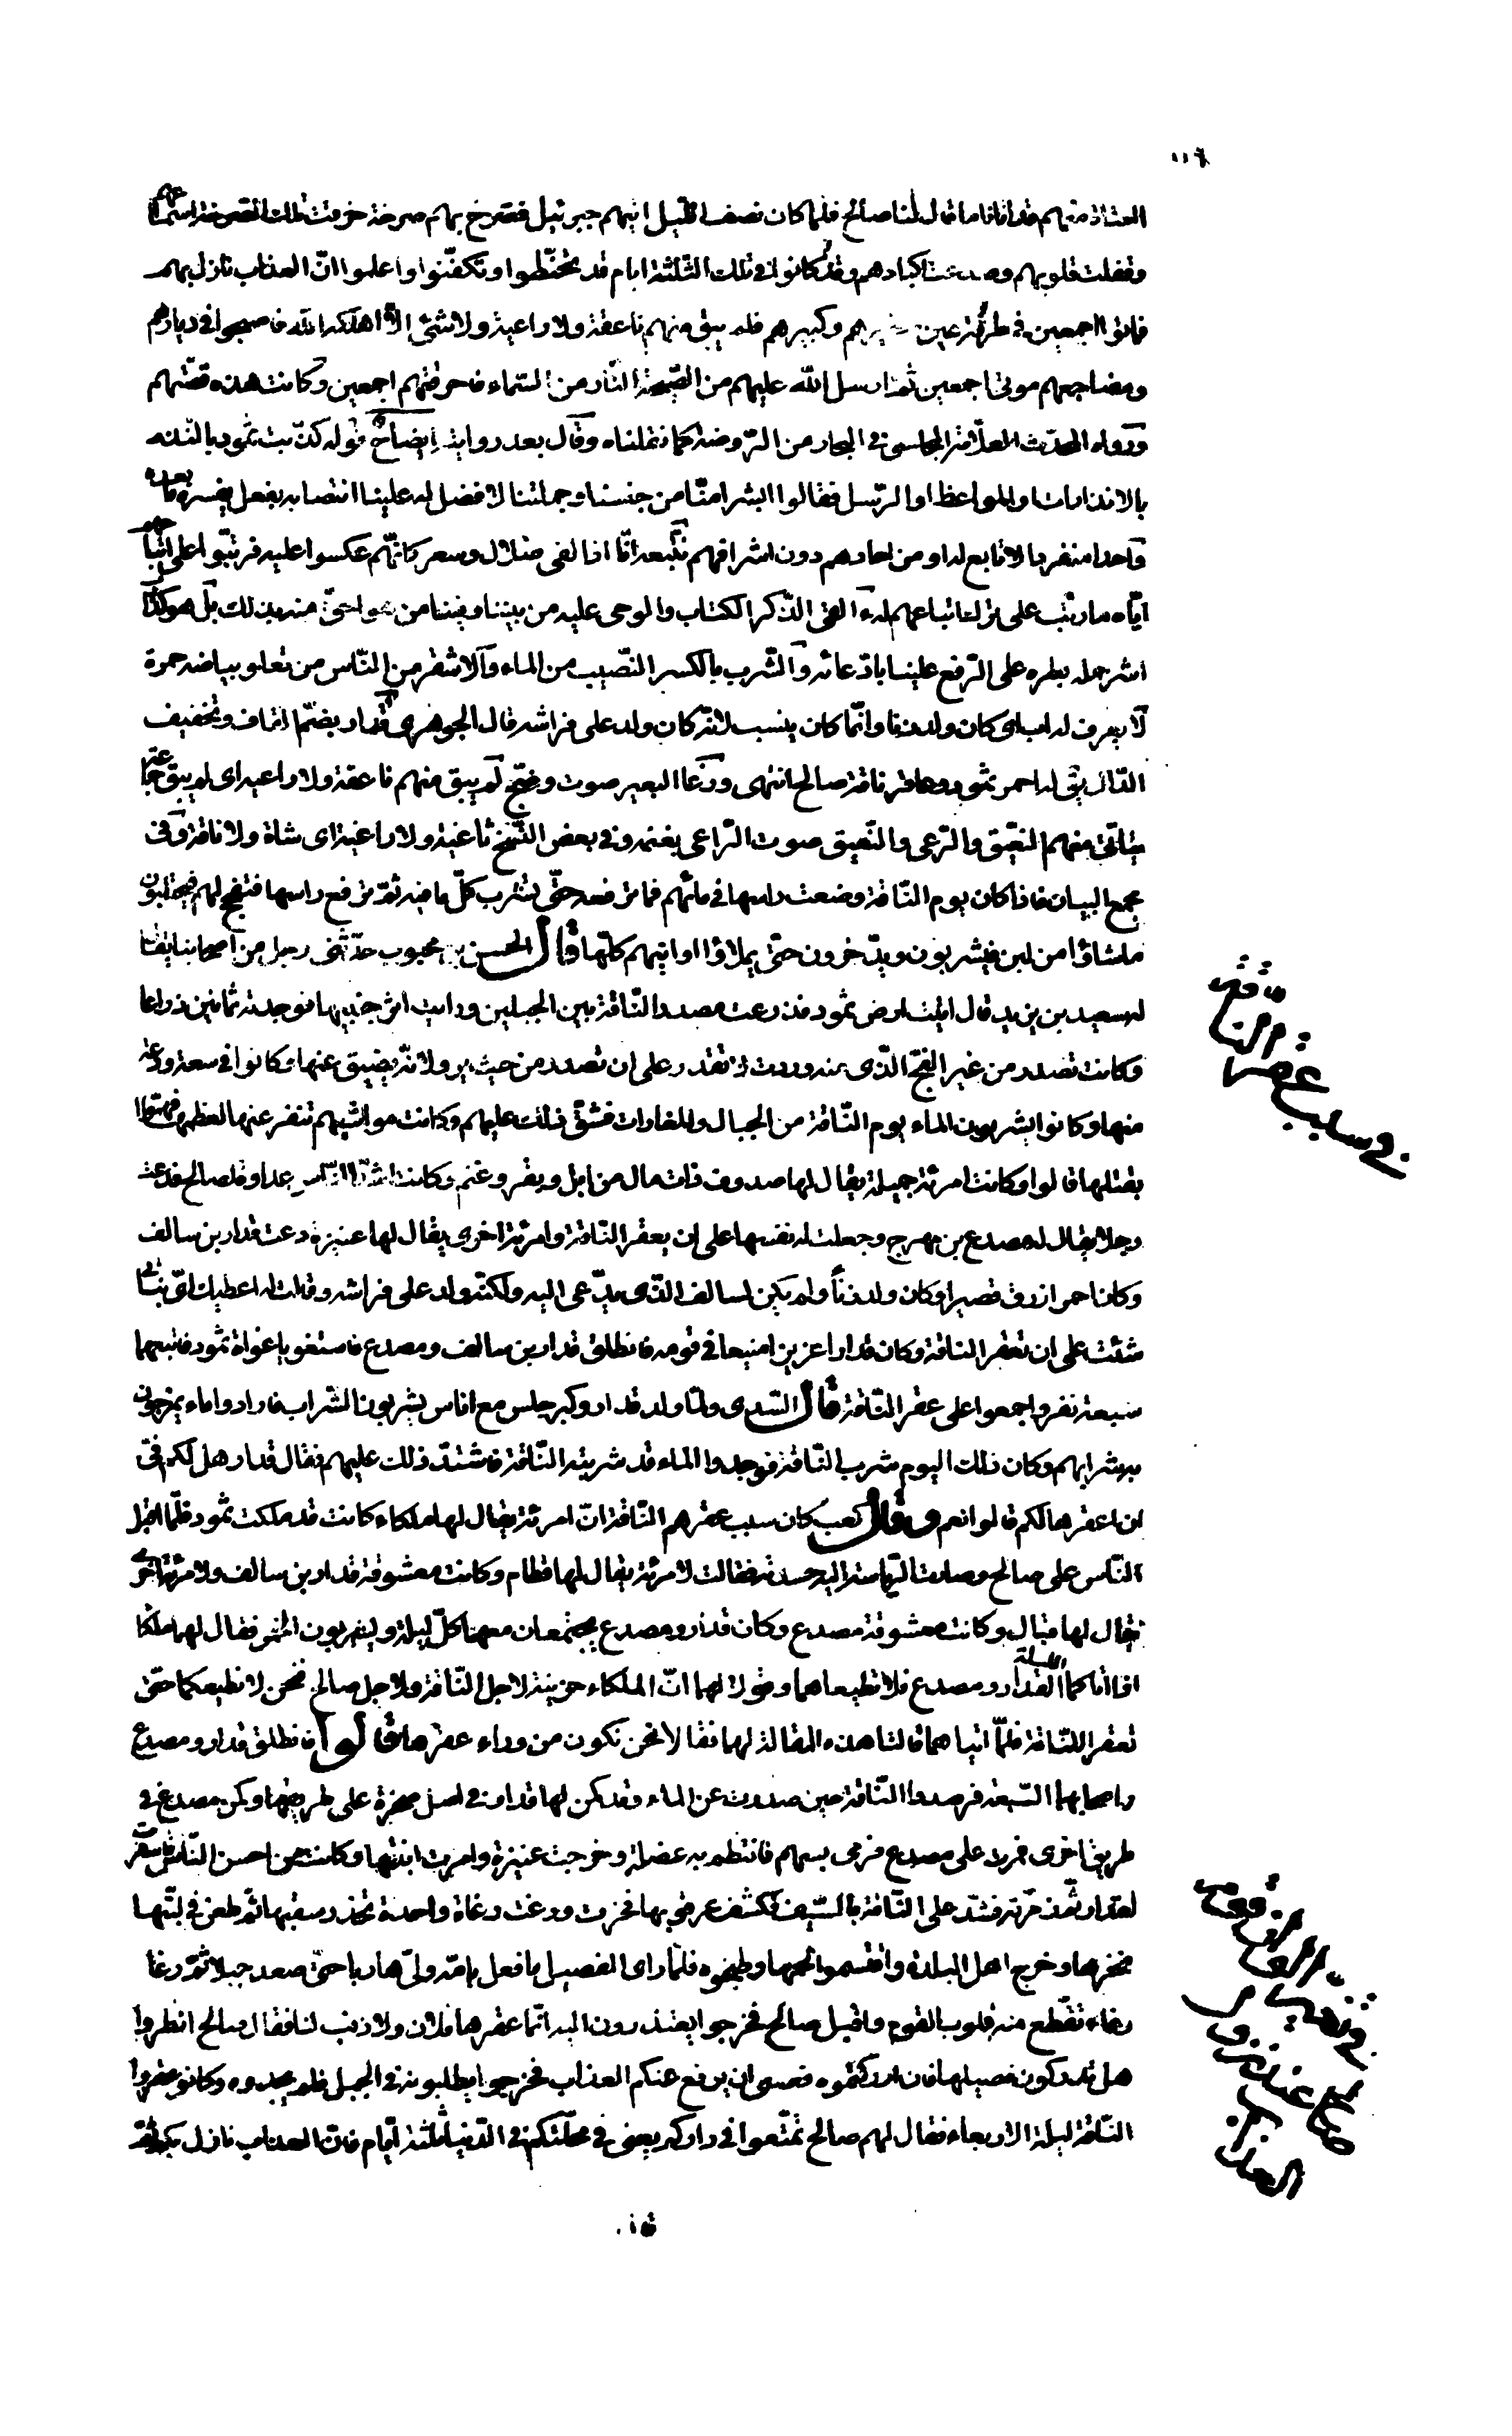 ١١٤
العتاة منهم قد اتانا ما قال لنا صالح فلما كان نصف الليل اتيهم جبرئيل فصرخ بهم صرخة خرقت تلك الصرخة اسماعهم
وفلقت قلوبهم وصدعت اكبادهم وقد كانوا في تلك الثلثة ايام قد تحنّطوا وتكفّنوا واعلموا انّ العذاب نازل بهم
فماتوا اجمعين في طرفة عين صغيرهم وكبيرهم فلم يبق منهم ناعقة ولا راعية ولا شئ الّا اهلكه الله فاصبحوا في ديارهم
ومضاجعهم موتى اجمعين ثمّ ارسل الله عليهم من الصّيحة النّار من السّماء فاحرقتهم اجمعين وكانت هذه قصّتهم
ورواه المحدّث العلّامة المجلسى في البحار من الرّوضة كما نقلناه وقال بعد روايته ايضاح قوله كذّبت ثمود بالنّذر
بالانذارات والمواعظ او الرّسل فقالوا ابشرا منّا من جنسنا وجملتنا لا فضل له علينا انتصابه بفعل يفسره ما بعده
واحدا منفردا لا تابع له او من احادهم دون اشرافهم نتّبعه انّا اذا لفى ضلال وسعر كانّهم عكسوا عليه فرتبّوا على اتّباعهم
ايّاه ما رتّب على ترك اتباعهم له ءالقى الذّكر الكتاب والوحى عليه من بيننا وفينا من هو احقّ منه بذلك بل هو كذّاب
اشر حمله بطره على الترفع علينا بادّعائه والشّرب بالكسر النّصيب من الماء والاشقر من النّاس من تعلو بياضه حمرة
لا يعرف له اب اى كان ولد زنا وانّما كان ينسب لانّه كان ولد على فراشه قال الجوهرى قدار بضمّ القاف وتخفيف
الدّال يقال له احمر ثمود وعاقر ناقة صالح انتهى ورغا البعير صوت وضجّ لم يبق منهم ناعقة ولا راعية اى لم يبق جماعة
يتاتّى منهم النعيق والرّعى والنّعيق صوت الرّاعى بغنمه وفي بعض النّسخ ثاغية ولا راغية اى شاة ولا ناقة وفى
مجمع البيان فاذا كان يوم النّاقة وضعت راسها في مائهم فما ترفعه حتّى تشرب كلّ ما فيه ثمّ ترفع راسها فتفجّ لهم فيحتلبون
ما شاؤا من لبن فيشربون ويدّخرون حتّى يملاؤا اوانيهم كلّها قال الحسن بن محبوب حدّثنى رجل من اصحابنا يقال
له سعيد بن يزيد قال اتيت ارض ثمود فذرعت مصدر النّاقة بين الجبلين ورايت اثر جنبيها فوجدته ثمانين ذراعا
وكانت تصدر من غير الفجّ الّذى منه وردت لا تقدر على ان تصدر من حيث ترد لانّه يضيق عنها وكانوا في سعة ودعة
منها وكانوا يشربون الماء يوم النّاقة من الجبال والمغارات فشقّ ذلك عليهم وكانت مواشيهم تنفر عنها لعظمها فهمّوا
بقتلها قالوا وكانت امرئة جميلة يقال لها صدوف ذات مال من ابل وبقر وغنم وكانت اشدّ النّاس عداوة لصالح فدعت
رجلا يقال له مصدع بن مهرج وجعلت له نفسها على ان يعقر النّاقة وامرئة اخرى يقال لها عنيزة دعت قدار بن سالف
وكان احمر ازرق قصيرا وكان ولد زنا ولم يكن لسالف الذّى يدّعى اليه ولكنّه ولد على فراشه وقالت له اعطيك اىّ بناتى
شئت على ان تعقر الناقة وكان قدار عزيزا منيعا في قومه فانطلق قدار بن سالف ومصدع فاستغويا غواة ثمود فاتبعهما
سبعة نفر واجمعوا على عقر النّاقة قال السّدى ولمّا ولد قدار وكبر جلس مع اناس يشربون الشّراب فارادوا ماء يمزجون
به شرابهم وكان ذلك اليوم شرب النّاقة فوجدوا الماء قد شربته النّاقة فاشتدّ ذلك عليهم فقال قدار هل لكم فى
ان اعقرها لكم قالوا نعم وقال كعب كان سبب عقرهم النّاقة انّ امرئة يقال لها ملكاء كانت قد ملكت ثمود فلمّا اقبل
النّاس على صالح وصارت الرّياسة اليه حسدته فقالت لامرئة يقال لها قطام وكانت معشوقة قدار بن سالف ولامرئة اخرى
يقال لها قبال وكانت معشوقة مصدع وكان قدار ومصدع يجتمعان معهما كلّ ليلة ويشربون الخمر فقال لهما ملكا
اذا اتاكما الليلة قدار ومصدع فلا تطيعاهما وقولا لهما انّ الملكاء حزينة لاجل النّاقة ولاجل صالح فنحن لا نطيعكما حتّى
تعقرا النّاقة فلمّا اتياهما قالتا هذه المقالة لهما فقالا نحن نكون من وراء عقرها قالوا فانطلق قدار ومصدع
واصحابهما السّبعة فرصدوا النّاقة حين صدرت عن الماء وقد كمن لها قدار في اصل صخرة على طريقها وكمن مصدع في
طريق اخرى فمرت على مصدع فرمى بسهم فانتظم به عضلة وخرجت عنيزة وامرت ابنتها وكانت من احسن النّاس فاسفرت
لقدار ثمّ ذمّرته فشدّ على النّاقة بالسّيف فكشف عرقوبها فخرت ورغت رغاة واحدة تحذر سقبها ثمّ طعن في لبّتها
فنحرها وخرج اهل البلدة واقتسموا لحمها وطبخوه فلمّا راى الفصيل ما فعل بامّه ولىّ هاربا حتّى صعد جبلا ثمّ رغا
رغاء تقطّع منه قلوب القوم واقبل صالح فخرجوا يعتذرون اليه انّما عقرها فلان ولا ذنب لنا فقال صالح انظروا
هل تدركون فصيلها فان ادركتموه فعسى ان يرفع عنكم العذاب فخرجوا يطلبونه في الجبل فلم يجدوه وكانوا عقروا
النّاقة ليلة الاربعاء فقال لهم صالح تمتّعوا في داركم يعنى في محلّتكم في الدّنيا ثلثة ايّام فانّ العذاب نازل بكم
في سبب عقر الناقة
صالح عند نزول
العذاب